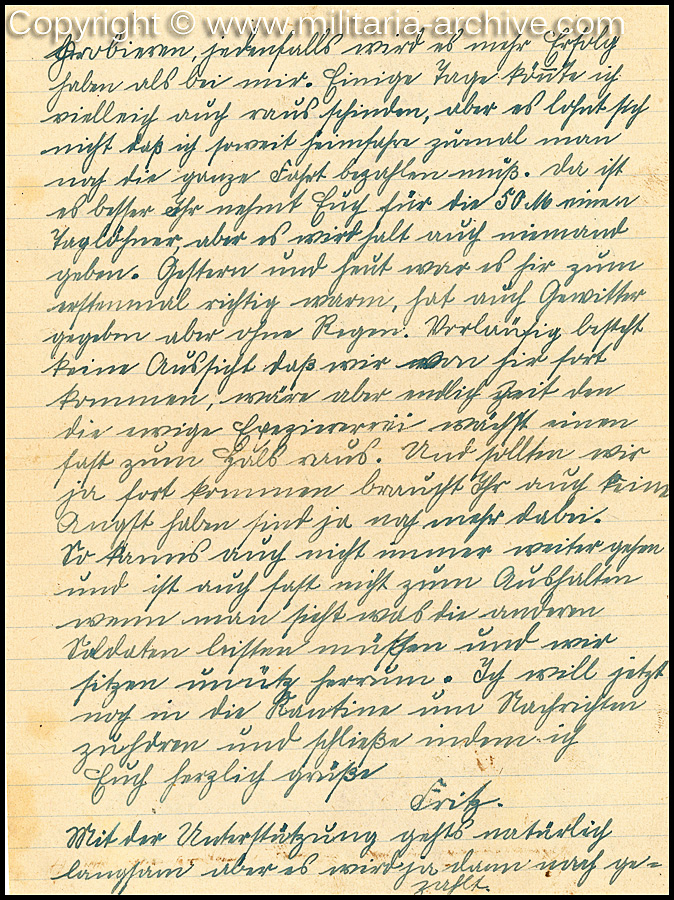 Copyright © www.militaria-archive.com
Probieren, jedenfalls wird es mehr Erfolg
haben als bei mir. Einige Tage könte ich
vielleich auch raus schinden, aber es lohnt sich
nicht daß ich soweit heimfahre zumal man
noch die ganze Fahrt bezahlen muß. Da ist
es besser Ihr nehmt Euch für die 50 M einen
Taglöhner, aber es wird halt auch niemand
geben. Gestern und heut war es hir zum
erstenmal richtig warm, hat auch Gewitter
gegeben aber ohne Regen. Vorläufig besteht
keine Aussicht daß wir von hir fort
kommen, wäre aber endlich Zeit den
die ewige Exeziererei wächst einen
fast zum Hals raus. Und sollten wir
ja fort kommen braucht Ihr auch keine
Angst haben sind ja noch mehr dabei.
So kanns auch nicht immer weiter gehen
und ist auch fast nicht zum Aushalten
wenn man sieht was die anderen
Soldaten leisten müssen und wir
sitzen unütz herrum. Ich will jetzt
noch in die Kantine um Nachrichten
zuhören und schließe indem ich
Euch herzlich grüße
Fritz.
Mit der Unterstützung gehts natürlich
langsam aber es wird ja dann nach ge=
zahlt.